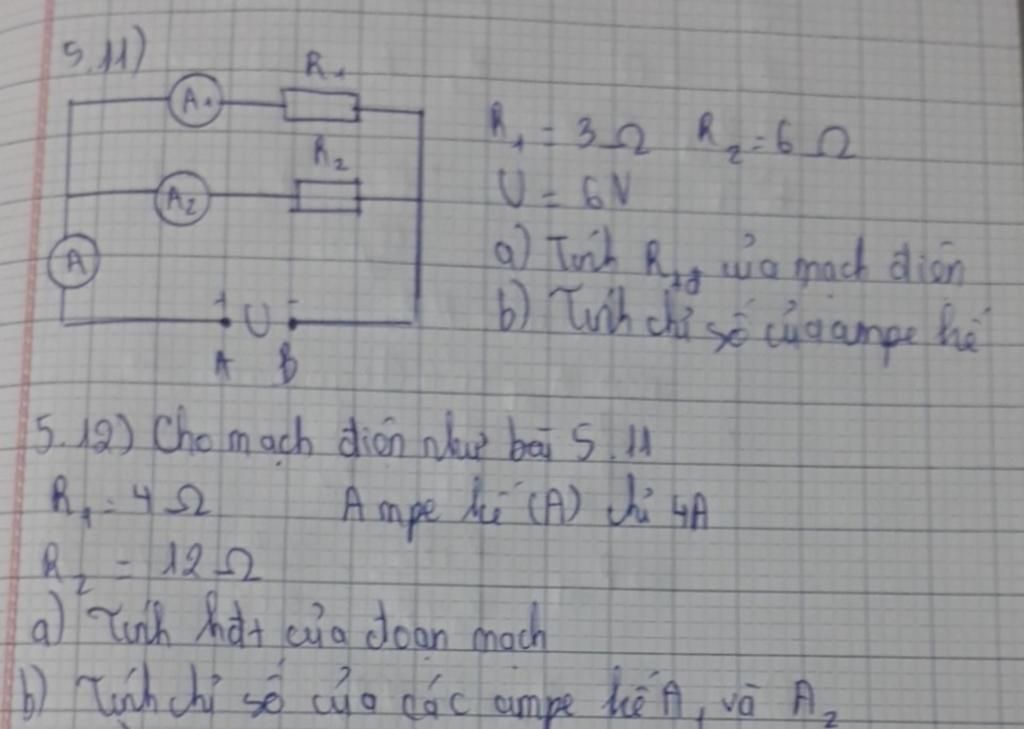 5.11)
R₁
A₁
R₂
A₂
A
+ U -
A B
R₁ = 3 Ω R₂ = 6 Ω
U = 6V
a) Tính R_tđ của mạch điện
b) Tính chỉ số của ampe kế
5.12) Cho mạch điện như bài 5.11
R₁ = 4 Ω Ampe kế (A) chỉ 4A
R₂ = 12 Ω
a) Tính hđt của đoạn mạch
b) Tính chỉ số của các ampe kế A₁ và A₂